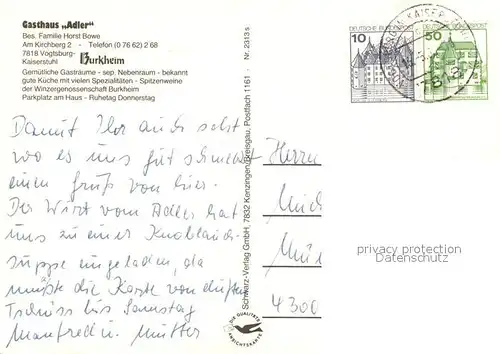 Gasthaus „Adler"
Bes. Familie Horst Bowe
Am Kirchberg 2 - Telefon (0 76 62) 2 68
7818 Vogtsburg-
Kaiserstuhl Burkheim
Gemütliche Gasträume - sep. Nebenraum - bekannt
gute Küche mit vielen Spezialitäten - Spitzenweine
der Winzergenossenschaft Burkheim
Parkplatz am Haus - Ruhetag Donnerstag
Damit Ihr auch seht
wo es uns gut schmeckt
einen Gruß von hier.
Der Wirt vom Adler hat
uns zu einer Knoblauch-
suppe eingeladen, da
mußte die Karte von duften
Tschüss bis Samstag
Manfred u. Mutter
Schwarz-Verlag GmbH, 7832 Kenzingen/Breisgau, Postfach 1161 - Nr. 2313 s
DIE QUALITÄTS
ANSICHTSKARTE
10 DEUTSCHE BUNDESPOST
50 DEUTSCHE BUNDESPOST
Herrn
4300
privacy protection
Datenschutz